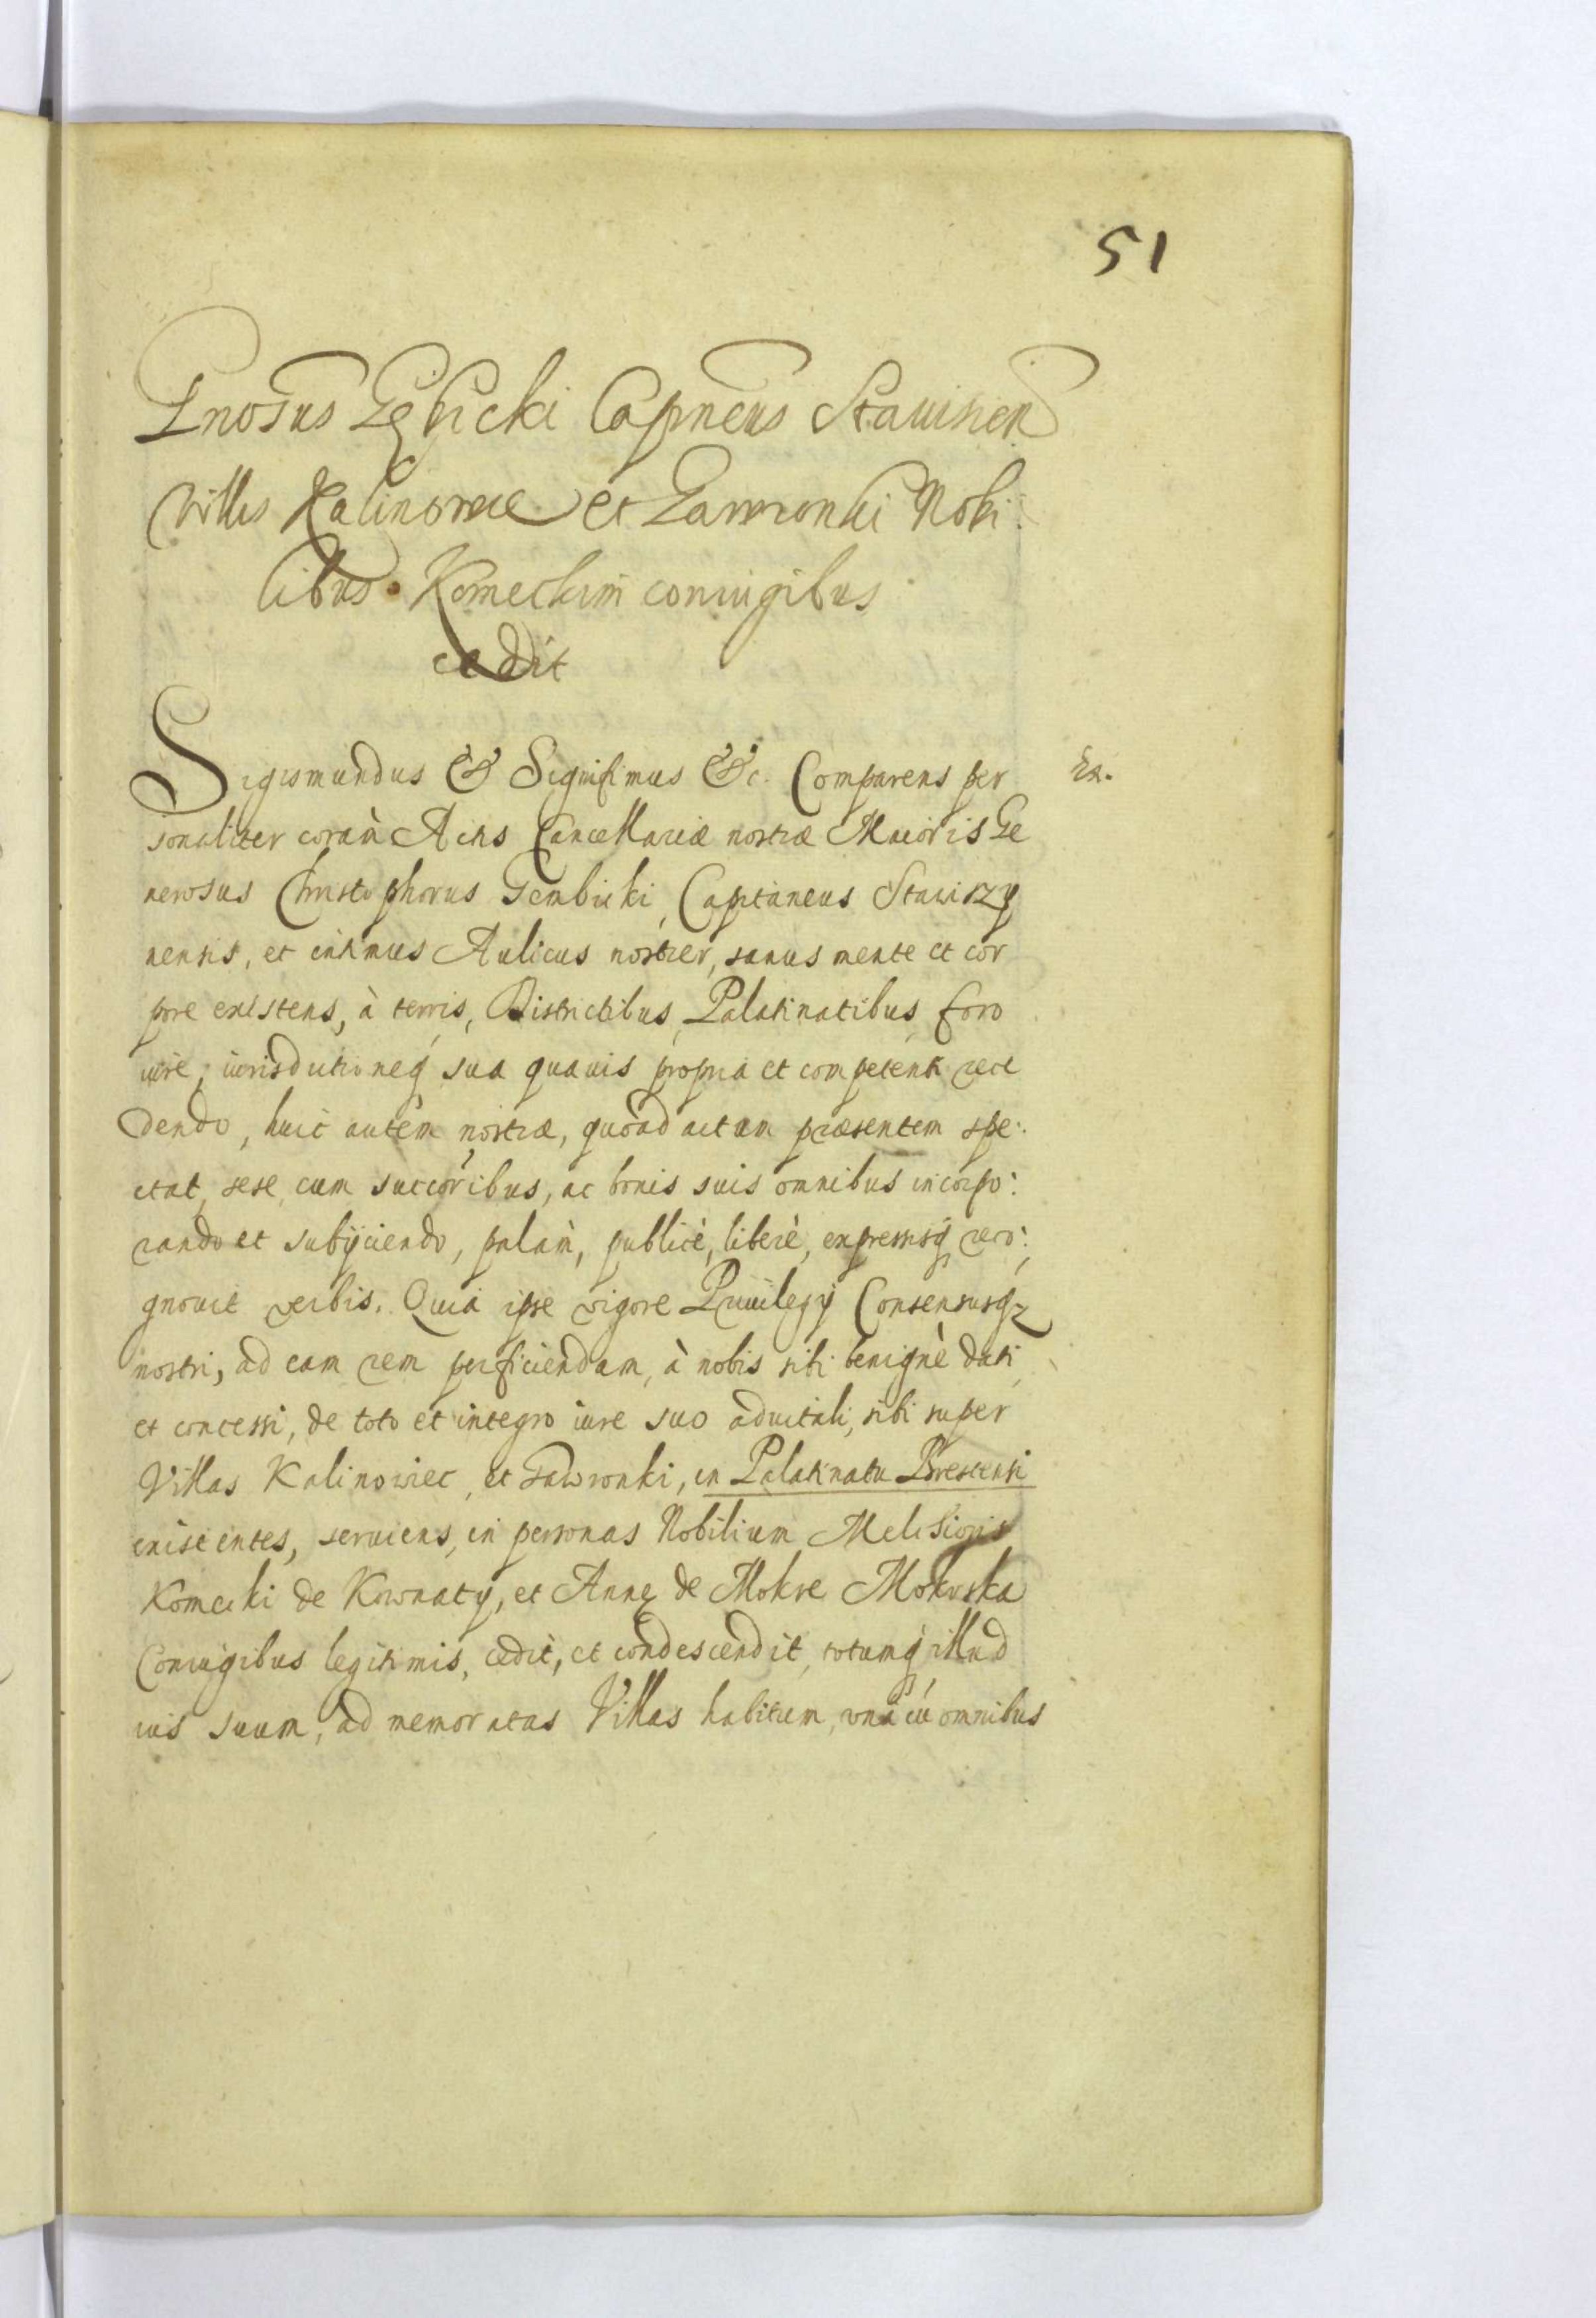 51
Gnosus Gębicki Capneus Stauisien
Villis Kalinowiec et Gawronki Nobi:
libus Komeckim coniugibus
cedit
Sigismundus &c Significamus &c. Comparens per
Ex.
sonaliter coram Actis Cancellariæ nostræ Maioris Ge
nerosus Christophorus Gembicki, Capitaneus Stawiszy
nensis, et intimus Aulicus noster, sanus mente et cor
pore existens, à terris, Districtibus, Palatinatibus foro
iure, iurisdictioneq sua quauis propria et competenti rece
dendo, huic autem nostræ, quòad actum præsentem spe:
ctat, sese cum succoribus, ac bonis suis omnibus incorpo:
rando et subijciendo, palàm, publicè, liberè, expressisq reco:
gnouit verbis. Quia ipse vigore Priuilegij Consensusqz
nostri, ad eam rem perficiendam, à nobis sibi benignè dati
et concessi, de toto et integro iure suo aduitali, sibi super
Villas Kalinowiec, et Gawronki, in Palatinatu Brestensi
existentes, seruiens, in personas Nobilium Melchioris
Komecki de Kownaty, et Annę de Mokre Mokrska
Coniugibus legitimis, cedit, et condescendit, totumq illud
ius suum, ad memoratas Villas habitum, unà cú omnibus